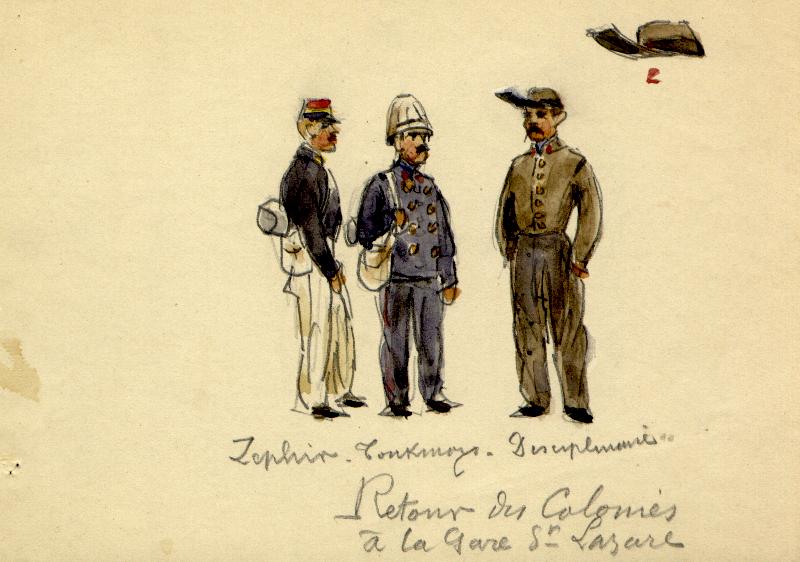 2
Zephir - Tonkinois - Disciplinaire
Retour des Colonies
à la Gare St Lazare